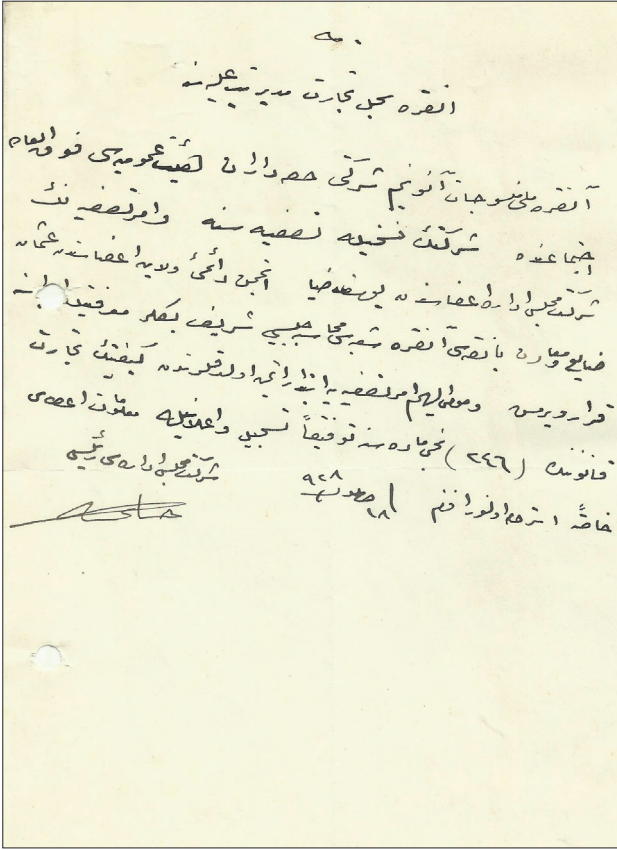 انقره سجل تجارت مديريت عليه سنه
آنقره ملى منسوجات آنونيم شركتى حصه داران هيئت عموميه سى فوق العاده
اجتماعنده شركتك فسخيله تصفيه سنه وامر تصفيه نك
شركت مجلس اداره اعضاسندن يوسف ضيا انجمن دائمئ ولايت اعضاسندن عثمان
صنايع ومعادن بانقه سى آنقره شعبه سى محاسبه جيسى شريف بكلر معرفتيله اجراسنه
قرار ويرمش ومومى اليهم امر تصفيه يه ابتدار ايتمش اولدقلرندن كيفيتك تجارت
قانوننك (٢٤٦) نجى ماده سنه توفيقاً تسجيل واعلانيله معاملات اعطاسى
خاصةً استرحام اولنور افندم ١٨ ٩٢٨
شركت مجلس اداره سى رئيسى